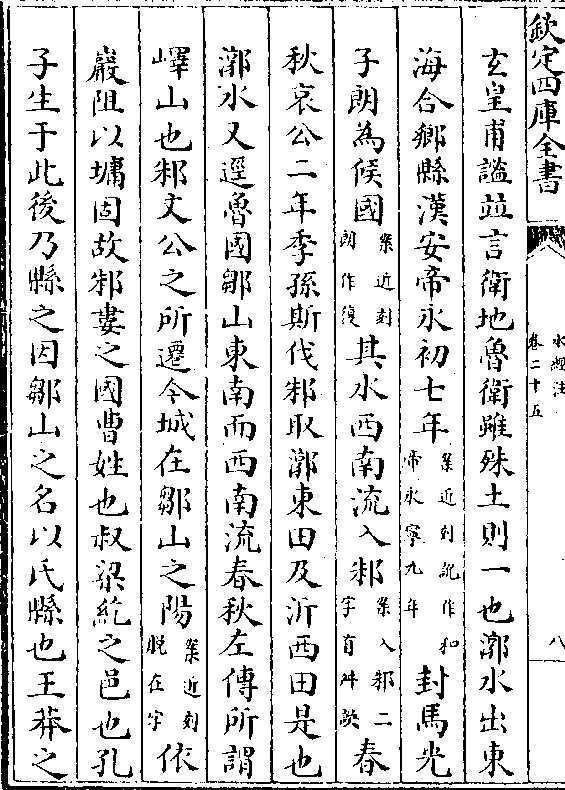 欽定四庫全書
水經注
卷二十五
八
玄皇甫謐並言衛地魯衛雖殊土則一也漷水出東
海合鄉縣漢安帝永初七年案近刻訛作和帝永寧九年封馬光
子朗為侯國案近刻朗作復其水西南流入邾案入邾二字有舛誤春
秋哀公二年季孫斯伐邾取漷東田及沂西田是也
漷水又逕魯國鄒山東南而西南流春秋左傳所謂
嶧山也邾文公之所遷今城在鄒山之陽案近刻脫在字依
巖阻以墉固故邾婁之國曹姓也叔梁紇之邑也孔
子生于此後乃縣之因鄒山之名以氏縣也王莽之